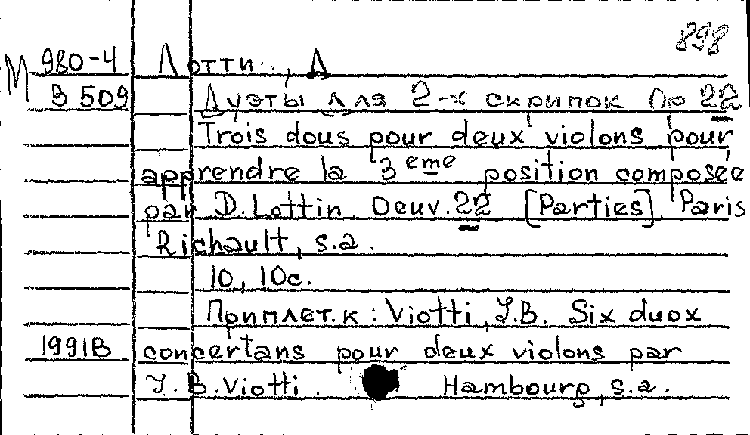 898
М 980-4 Лотти., Д
З 509 Дуэты для 2-х скрипок Оп 22
Trois dous pour deux violons pour
apprendre la 3 eme position composée
par D. Lottin. Oeuv. 22 [Parties]. Paris
Richault, s.a.
10, 10c.
Приплет. к: Viotti, J.B. Six duox
1991В concertans pour deux violons par
J.B. Viotti. Hambourg, s.a.